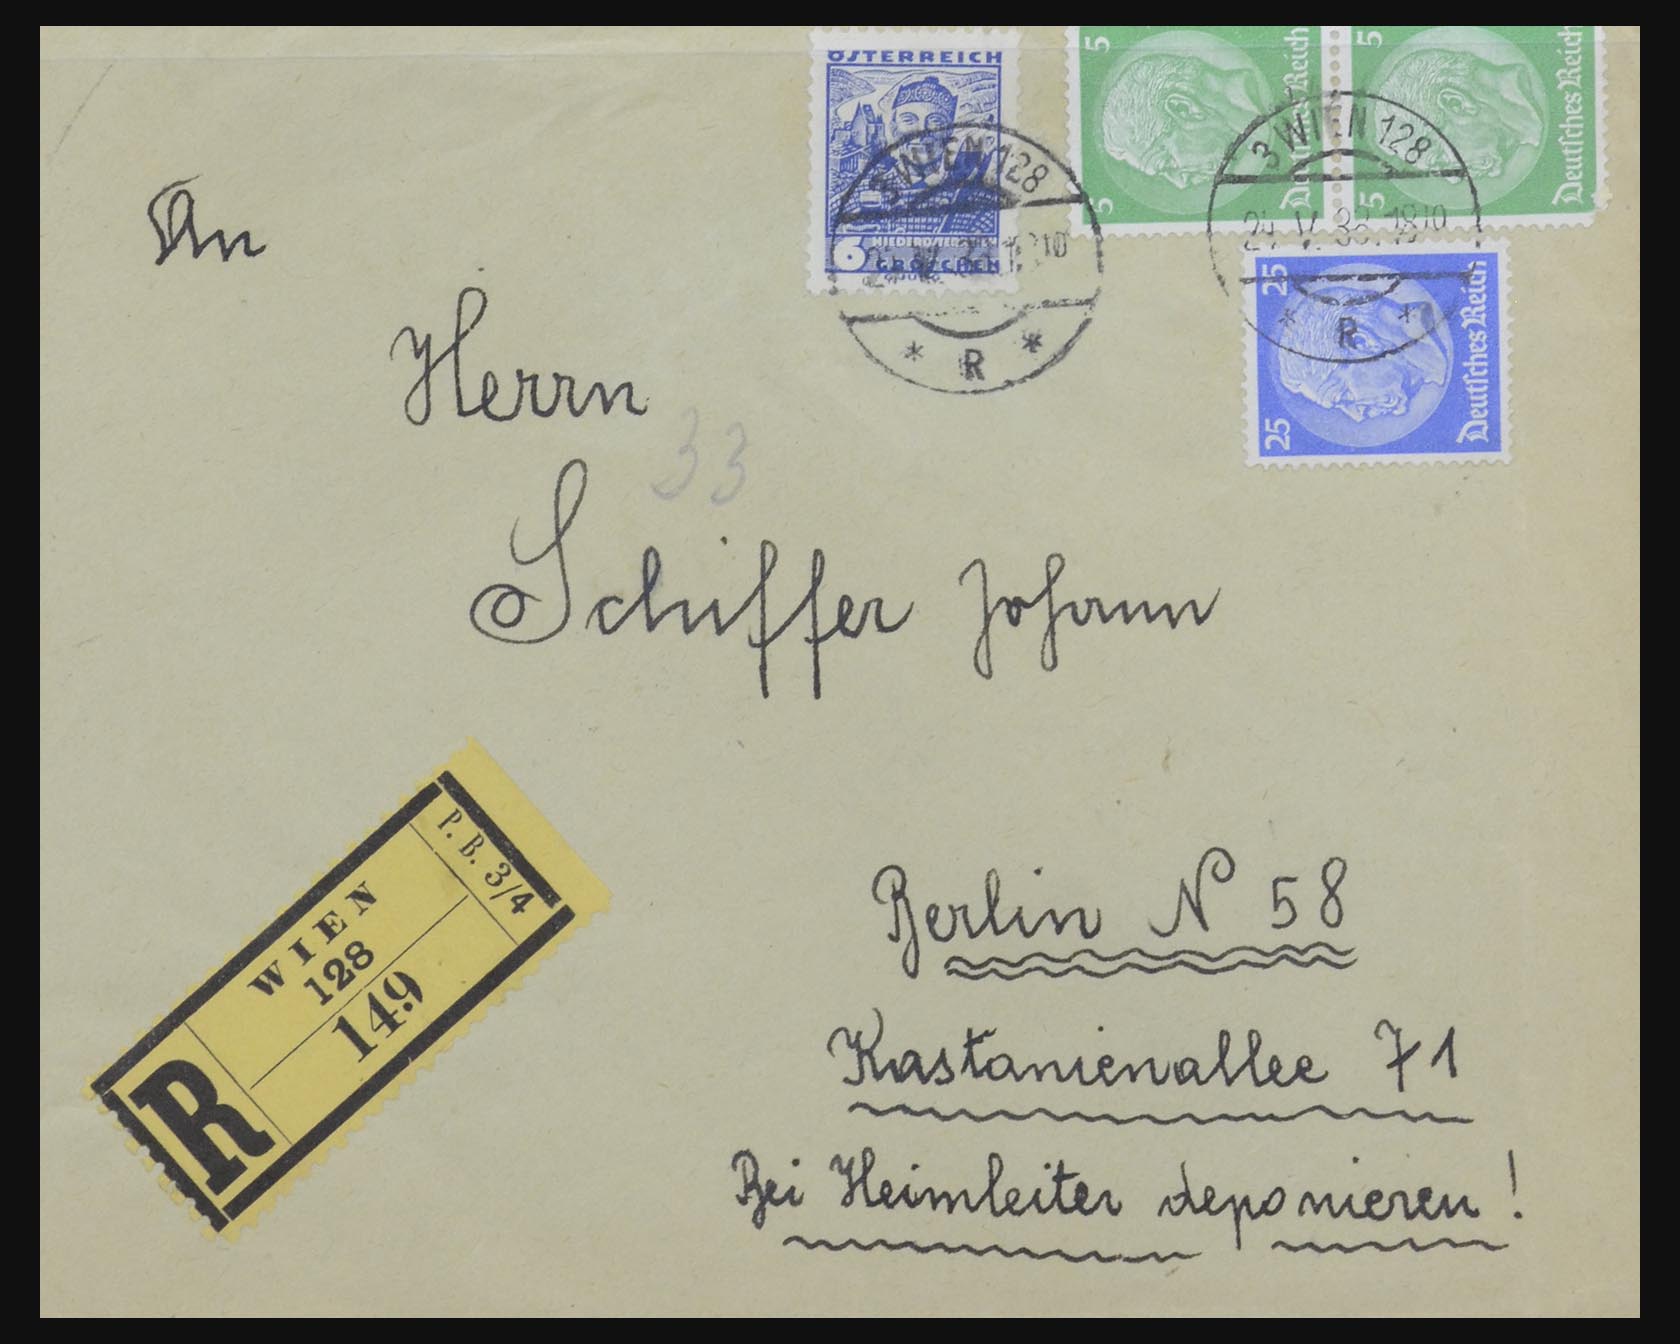 ÖSTERREICH
6
NIEDERÖSTERREICH
GROSCHEN
3 WIEN 128
* R *
5
5
Deutsches Reich
5
5
Deutsches Reich
3 WIEN 128
24.V.38.18
* R *
25
25
Deutsches Reich
An
Herrn
33
Schiffer Johann
P. B. 3/4
WIEN
128
149
R
Berlin N 58
Kastanienallee 71
Bei Heimleiter deponieren!